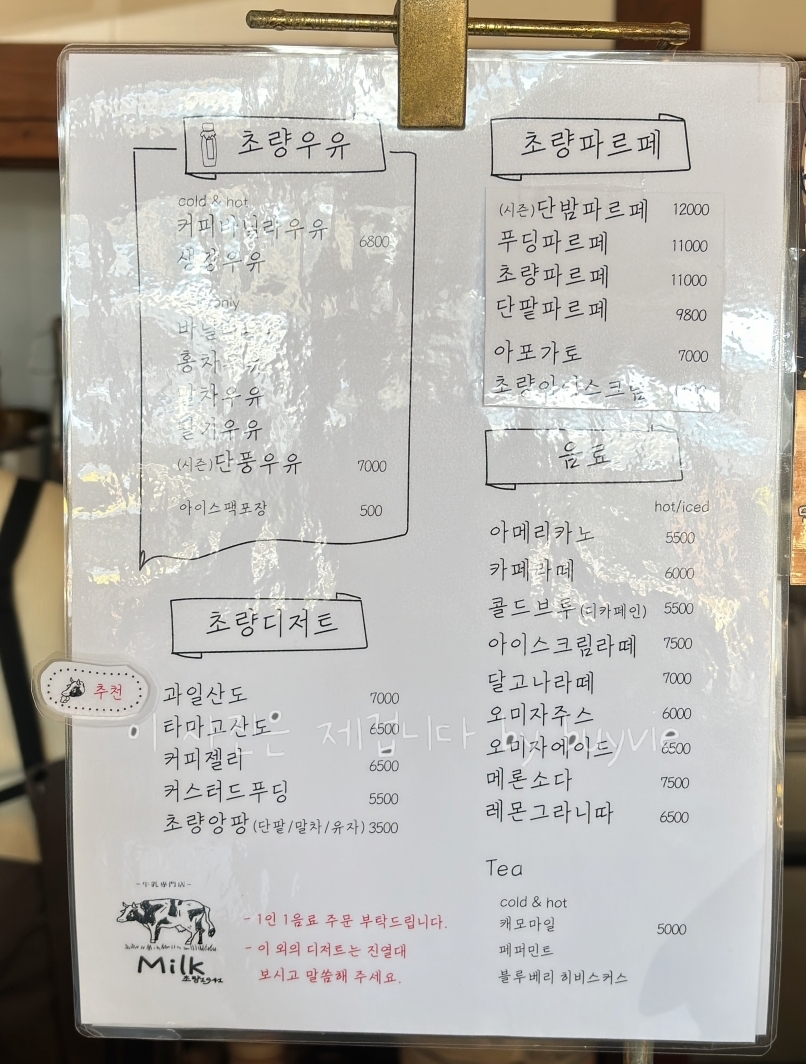 초량우유
cold & hot
커피바닐라우유 6800
생강우유
only
홍차
말차우유
딸기우유
(시즌)단풍우유 7000
아이스팩포장 500
초량파르페
(시즌)단밤파르페 12000
푸딩파르페 11000
초량파르페 11000
단팥파르페 9800
아포가토 7000
초량아이스크림
음료
hot/iced
아메리카노 5500
카페라떼 6000
콜드브루(디카페인) 5500
아이스크림라떼 7500
달고나라떼 7000
오미자주스 6000
오미자에이드 6500
메론소다 7500
레몬그라니따 6500
Tea
cold & hot
캐모마일 5000
페퍼민트
블루베리 히비스커스
초량디저트
추천
과일산도 7000
타마고산도 6500
커피젤리 6500
커스터드푸딩 5500
초량앙팡(단팥/말차/유자) 3500
이 사진은 제겁니다 by buyvie
-牛乳專門店-
Milk
초량1941
- 1인 1음료 주문 부탁드립니다.
- 이 외의 디저트는 진열대
보시고 말씀해 주세요.